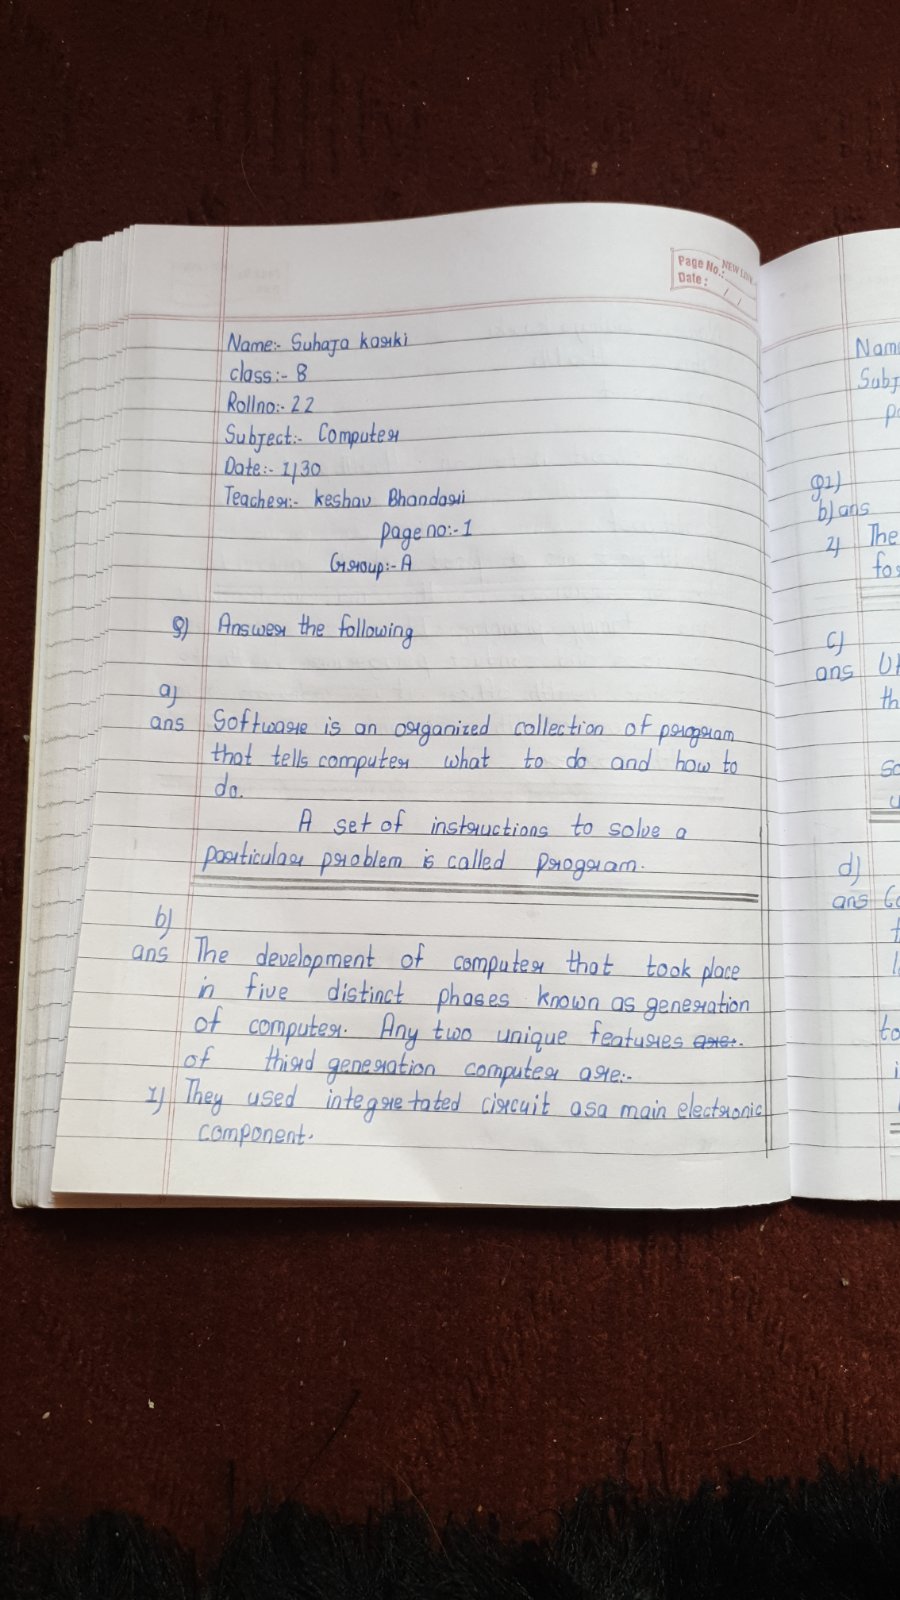 Page No.: NEW
Date: / /
Name:- Suhaja karki
class:- 8
Rollno:- 22
Subject:- Computer
Date:- 1/30
Teacher:- Keshav Bhandari
page no:- 1
Group:- A
Q) Answer the following
a)
ans Software is an organized collection of program
that tells computer what to do and how to
do.
A set of instructions to solve a
particular problem is called program.
b)
ans The development of computer that took place
in five distinct phases known as generation
of computer. Any two unique features are:-
of third generation computer are:-
1) They used integretated circuit as a main electronic
component.
Nam
Subj
Q1)
b) ans
2) The
fo
c)
ans
th
so
u
d)
ans Co
to
i